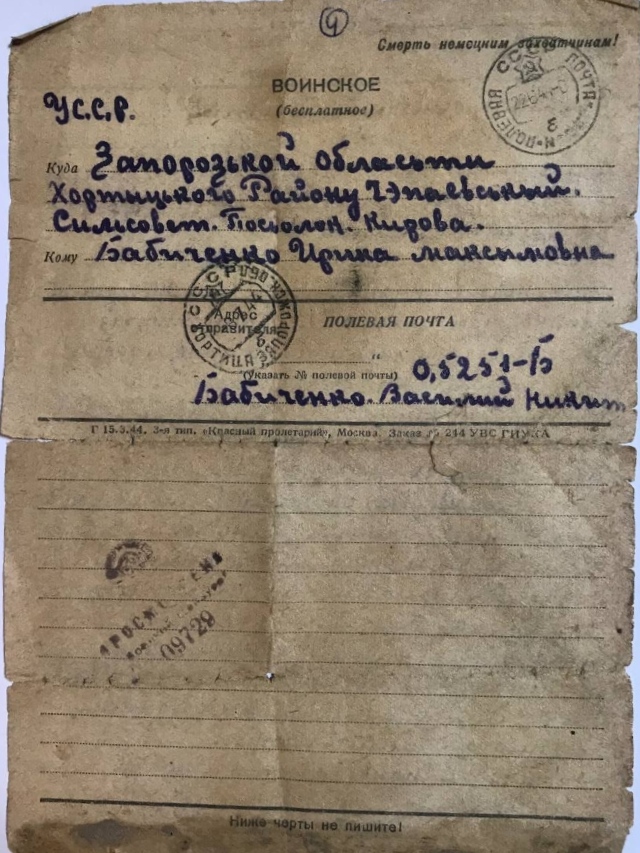 4
Смерть немецким захватчикам!
СССР ПОЛЕВАЯ ПОЧТА
б
ВОИНСКОЕ
(бесплатное)
УС.С.Р.
Куда Запорозькой Обласьти
Хортыцького Району Чэпаевський.
Сильсовет. Посьолок. Кирова.
Кому Бабиченко Ирина максымовна
СССР ХОРТИЦА ЗАПОРОЖСК ОБЛ
б
Адрес
отправителя
ПОЛЕВАЯ ПОЧТА
(указать № полевой почты) 0,5251-Б
Бабиченко. Василий Никит
Г 15.3.44. 3-я тип. «Красный пролетарий», Москва. Заказ № 244 УВС ГИУКА
ПРОСМОТРЕНО
Военной Цензурой
09729
Ниже черты не пишите!